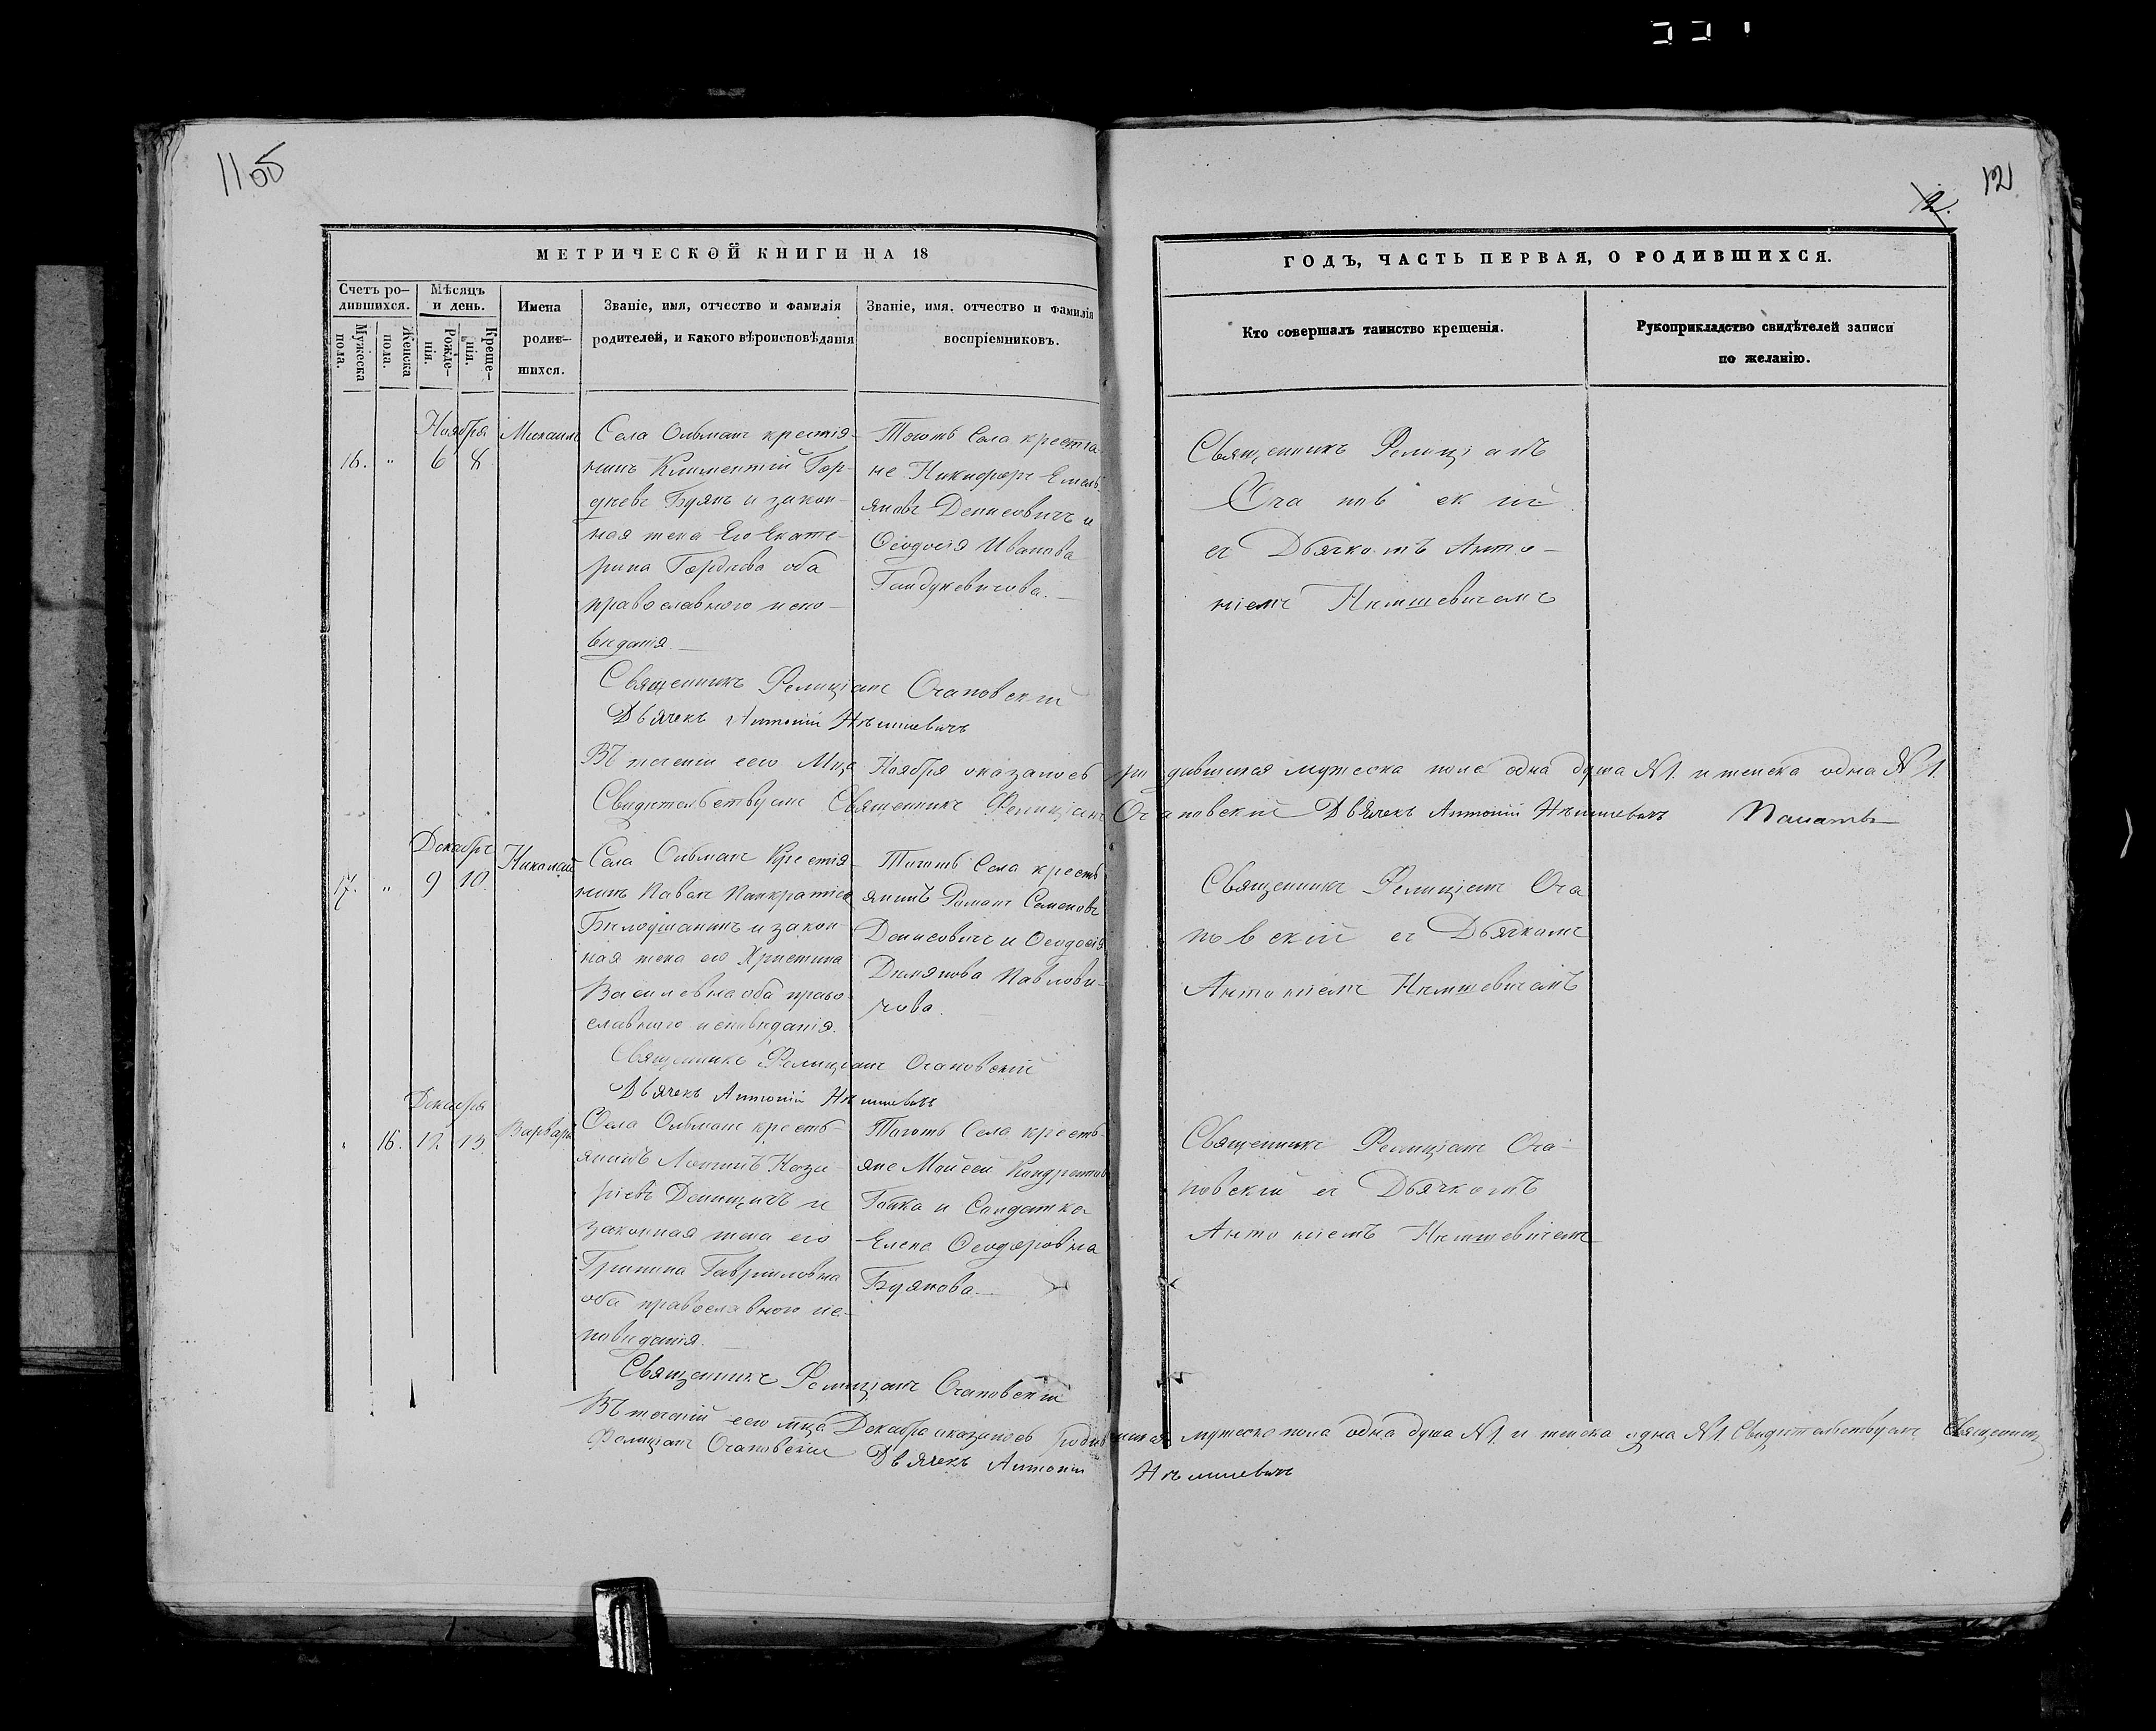 1105
12
12.
МЕТРИЧЕСКОЙ КНИГИ НА 18
ГОДЪ, ЧАСТЬ ПЕРВАЯ, О РОДИВШИХСЯ.
Счетъ ро-
дившихся.
Мѣсяцъ
и день.
Мужеска
пола.
Женска
пола.
Рожде-
нія.
Креще-
нія.
Имена
родив-
шихся.
Званіе, имя, отчество и фамилія
родителей, и какого вѣроисповѣданія
Званіе, имя, отчество и фамилія
воспріемниковъ.
Кто совершалъ таинство крещенія.
Рукоприкладство свидѣтелей записи
по желанію.
Ноября
16. " 6 8
Михаилъ
Села Ольманъ крестія-
нинъ Климентій Гор-
дѣевъ Буякъ и закон-
ная жена Его Екате-
рина Гордѣева оба
православного испо-
вѣданія.
Тогожъ Села крестья
не Никифоръ Емель-
яновъ Денисовичъ и
Ѳеодосія Иванова
Гайдукевичова.
Священникъ Фелиціанъ
Очаповскій
съ Дьячкомъ Анто-
ніемъ Нѣмшевичемъ
Священникъ Фелиціанъ Очаповскій
Дьячекъ Антоній Нѣмшевичъ
Въ теченіи сего Мца Ноября оказалось родившихся мужеска пола одна душа №1. и женска одна №1.
Свидѣтельствуемъ Священникъ Фелиціанъ Очаповскій Дьячекъ Антоній Нѣмшевичъ
Декабря
17. " 9 10.
Николай
Села Ольманъ Крестія-
нинъ Павелъ Панкратіевъ
Бѣлодшанинъ и закон-
ная жена его Христина
Васильевна оба право-
славнаго исповѣданія.
Тогожъ Села кресть
янинъ Романъ Семеновъ
Денисовичъ и Ѳеодосія
Демянова Павлови-
чова.
Священникъ Фелиціанъ Оча
повскій съ Дьячкомъ
Антоніемъ Нѣмшевичемъ
Священникъ Фелиціанъ Очаповскій
Дьячекъ Антоній Нѣмшевичъ
Декабря
" 16. 12 13.
Варвара
Села Ольманъ кресть
янинъ Логинъ Наза-
ріевъ Денищичъ и
законная жена его
Гришина Гавриловна
оба православного ис-
повѣданія.
Тогожъ Села кресть-
яне Мойсей Кондратовъ
Гойка и Солдатка
Елена Ѳеодоровна
Буякова.
Священникъ Фелиціанъ Оча-
повскій съ Дьячкомъ
Антоніемъ Нѣмшевичемъ
Священникъ Фелиціанъ Очаповскій
Въ теченій сего мца Декабра оказалось родившихся мужеска пола одна душа №1. и женска одна №1. Свидѣтельствуемъ Священникъ
Фелиціанъ Очаповскій Дьячекъ Антоній Нѣмшевичъ